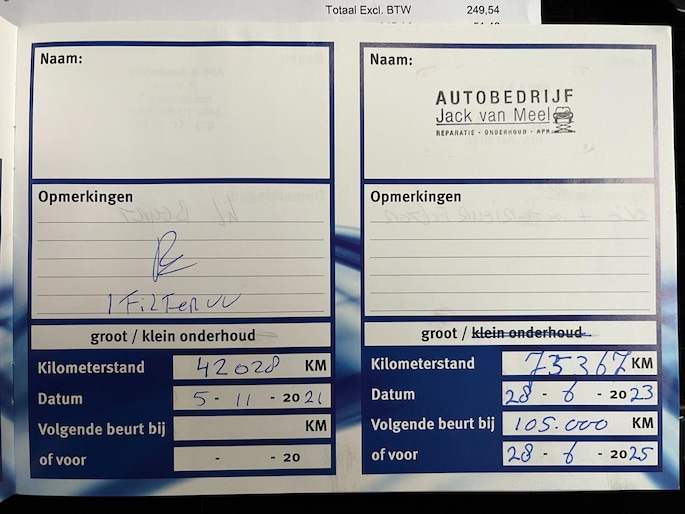 Totaal Excl. BTW 249,54
Naam:
Opmerkingen
groot / klein onderhoud
Kilometerstand 42028 KM
Datum 5 - 11 - 20 21
Volgende beurt bij KM
of voor - - 20
Naam:
AUTOBEDRIJF
Jack van Meel
REPARATIE - ONDERHOUD - APK
Opmerkingen
groot / klein onderhoud
Kilometerstand 75367 KM
Datum 28 - 6 - 2023
Volgende beurt bij 105.000 KM
of voor 28 - 6 - 2025